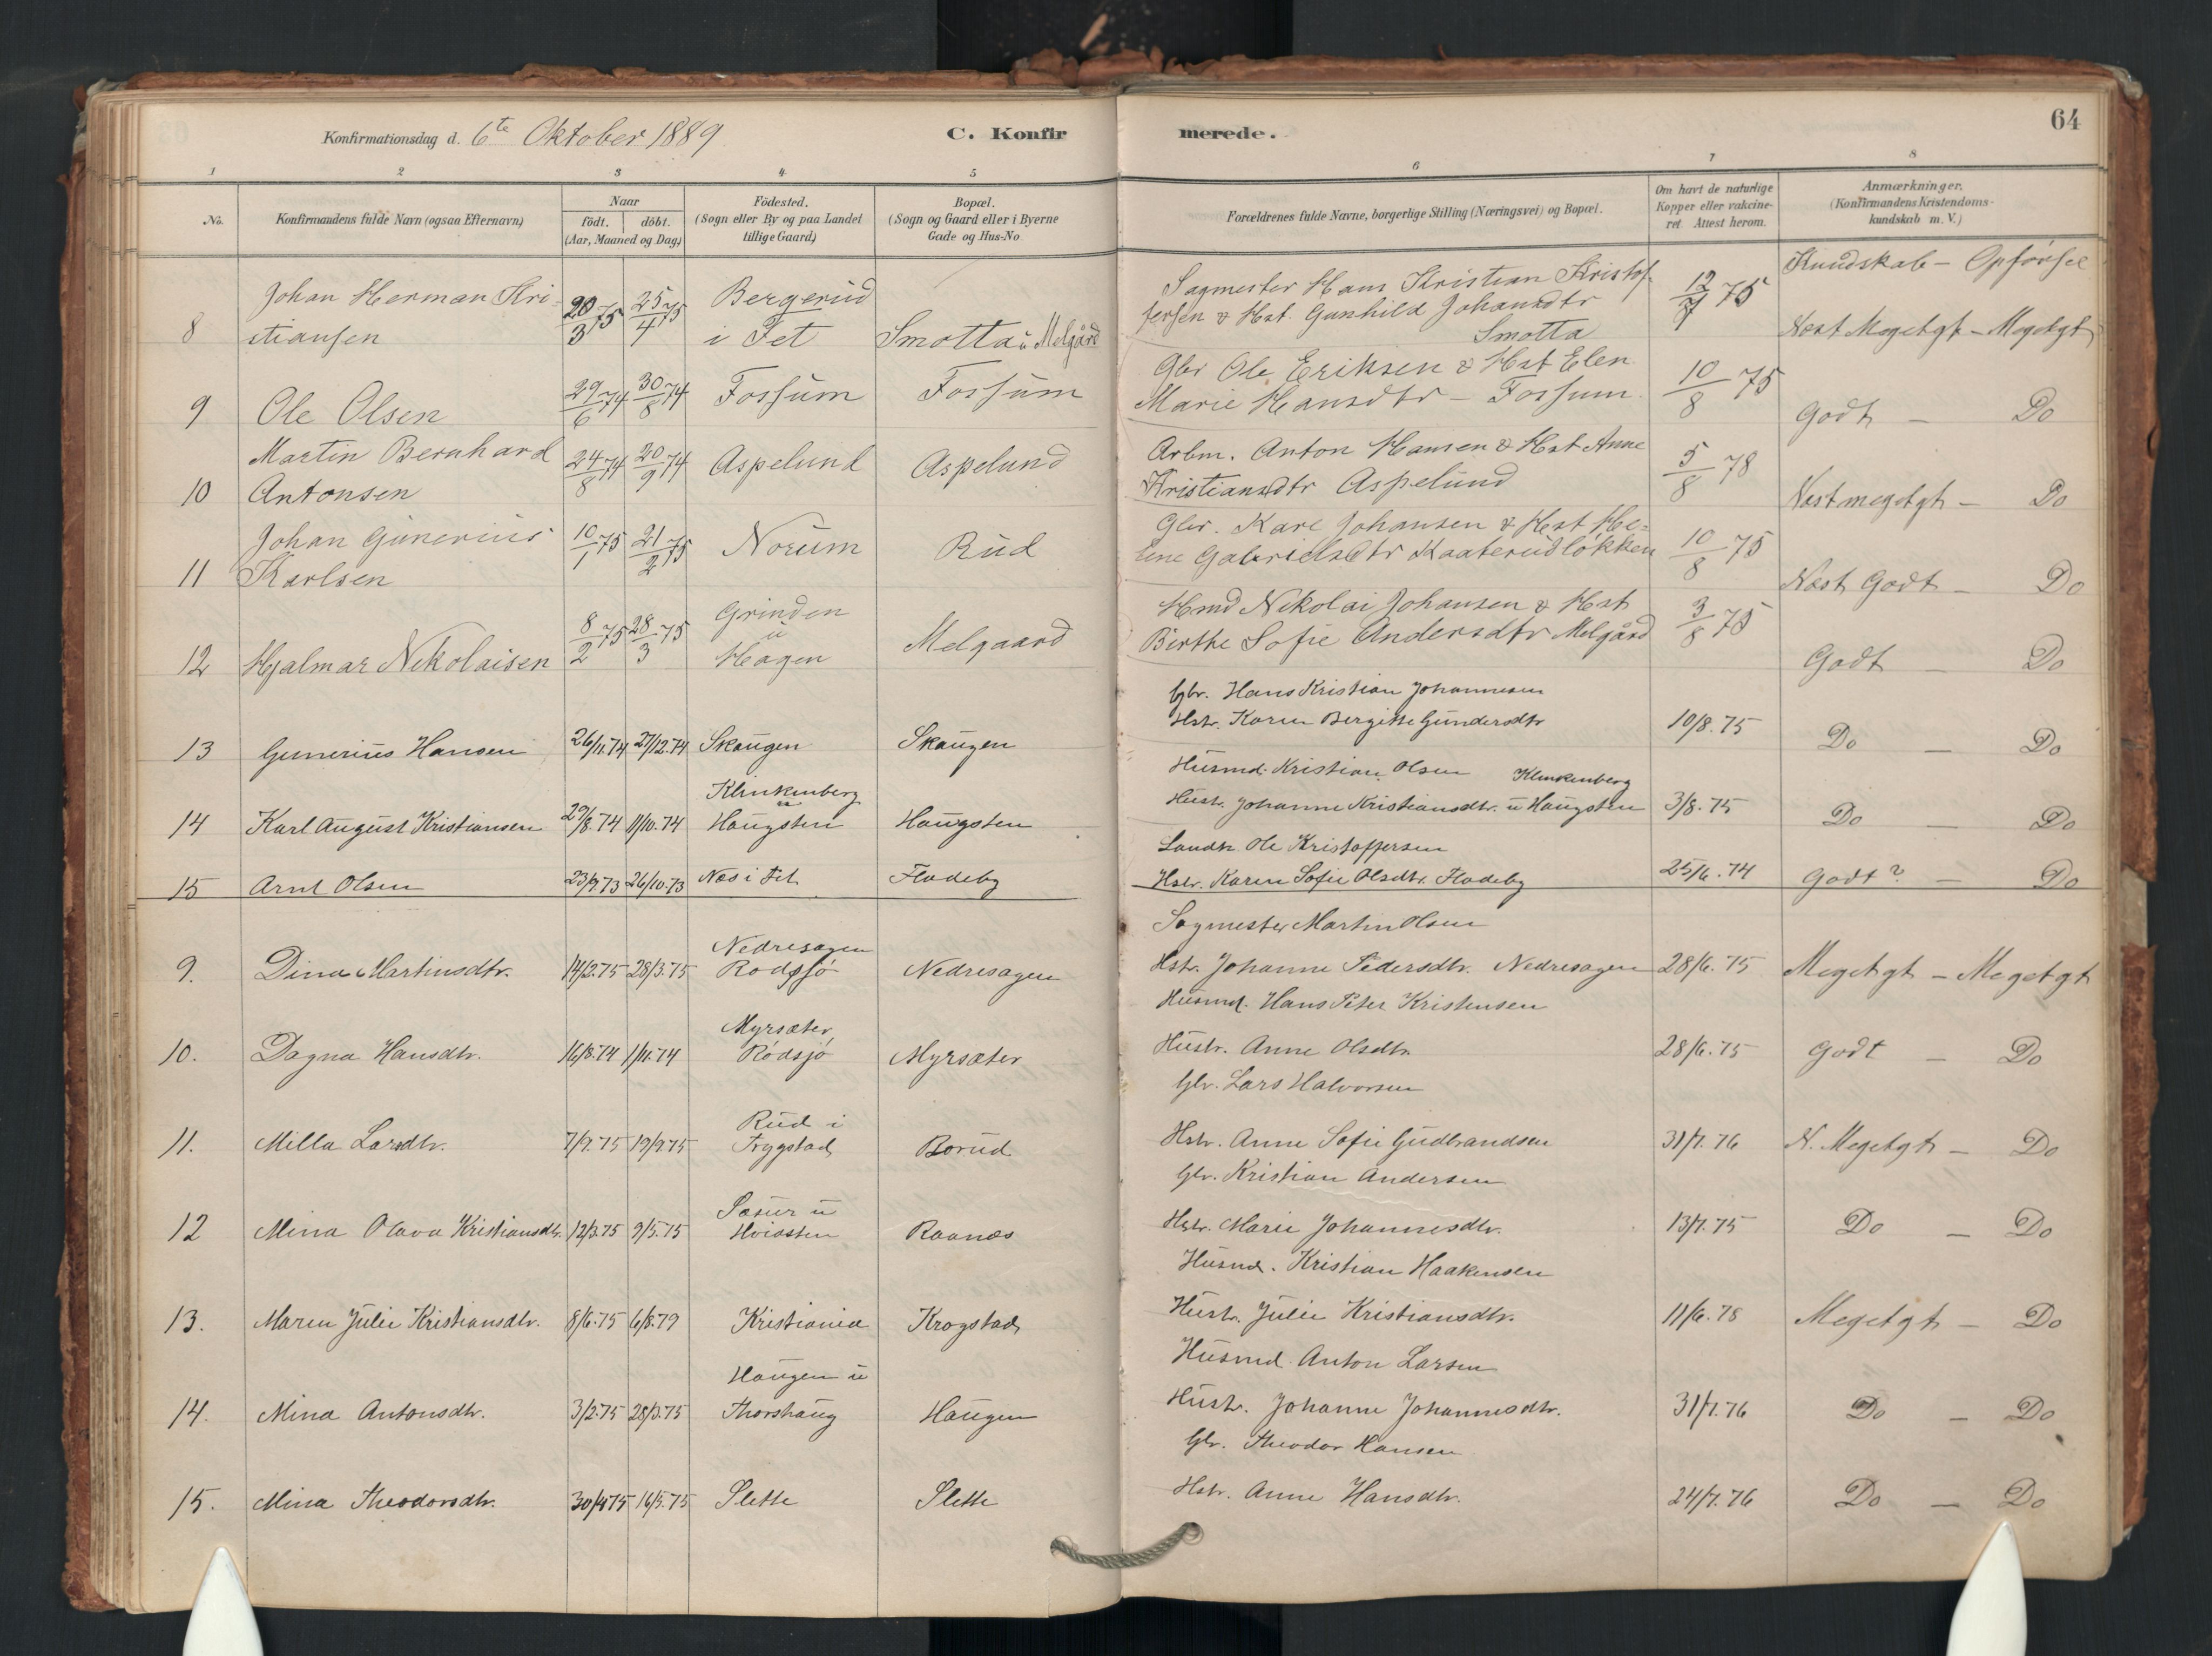 64
Konfirmationsdag d. 6te Oktober 1889 C. Konfirmerede.
1 2 3 4 5 6 7 8
No. Konfirmandens fulde Navn (ogsaa Efternavn) Naar födt. döbt. (Aar, Maaned og Dag) Födested. (Sogn eller By og paa Landet tillige Gaard) Bopæl. (Sogn og Gaard eller i Byerne Gade og Hus-No Forældrenes fulde Navne, borgerlige Stilling (Næringsvei) og Bopæl. Om havt de naturlige Kopper eller vakcineret Attest herom. Anmærkninger. (Konfirmandens Kristendomskundskab m. V.)
Kundskab - Opførsel
Johan Herman Kri- 20/3 75 25/4 75 Bergerud Sagmester Hans Kristian Kristof- 12/7 75
8 stiansen i Fet Smotta u Melgård fersen & Hst. Gunhild Johansdtr Smotta Næst Megetgt - Megetgt
9 Ole Olsen 29/6 74 30/8 74 Fossum Fossum Gbr Ole Eriksen & Hst Elen
Marie Hansdtr - Fossum 10/8 75 Godt - Do
Martin Bernhard 24/8 74 20/9 74 Aspelund Aspelund Arbm. Anton Hansen & Hst Anne
10 Antonsen Kristiansdtr Aspelund 5/8 78 Næst megetgt - Do
Johan Gunerius 10/1 75 21/2 75 Norum Rud Gbr. Karl Johansen & Hst He-
11 Karlsen lene Gabrielsdtr Kaaterudløkken 10/8 75 Næst Godt - Do
12 Hjalmar Nikolaisen 8/2 75 28/3 75 Grinden u Hagen Melgaard Hmd Nikolai Johansen & Hst
Birthe Sofie Andersdtr Melgård 3/8 75 Godt - Do
Gbr. Hans Kristian Johannesen
13 Gunerius Hansen 26/11.74 27/12.74 Skaugen Skaugen Hstr. Karen Birgitte Gundersdtr 10/8.75 Do - Do
Klinkenberg Husmd. Kristian Olsen Klinkenberg
14 Karl August Kristiansen 29/8.74 11/10.74 u Haugsten Haugsten Hustr. Johanne Kristiansdtr. u Haugsten 3/8.75 Do - Do
Landh. Ole Kristoffersen
15 Arnt Olsen 23/9.73 26/10.73 Næs i Fet Fladeby Hstr. Karen Sofie Olsdtr. Fladeby 25/6.74 Godt? - Do
Nedresagen Sagmester Martin Olsen
9. Dina Martinsdtr. 14/2.75 28/3.75 Rødsjø Nedresagen Hstr. Johanne Pedersdtr. Nedresagen 28/6.75 Megetgt - Megetgt
Myrsæter Husmd. Hans Peter Kristensen
10. Dagna Hansdtr. 16/8.74 1/11.74 Rødsjø Myrsæter Hustr. Anne Olsdtr. 28/6.75 Godt - Do
Rud i Gbr. Lars Halvorsen
11. Milla Larsdtr. 7/9.75 19/9.75 Trygstad Borud Hstr. Anne Sofie Gudbrandsen 31/7.76 N. Megetgt - Do
u Gbr. Kristian Andersen
12 Mina Olava Kristiansdtr. 12/3.75 9/5.75 Hvidsten Raanæs Hstr. Marie Johannesdtr. 13/7.75 Do - Do
Husmd. Kristian Haakensen
13. Maren Julie Kristiansdtr. 8/6.75 6/8.79 Kristiania Krogstad Hustr. Julie Kristiansdtr. 11/6.78 Megetgt - Do
Haugen u Husmd Anton Larsen
14. Mina Antonsdtr. 3/2.75 28/3.75 Thorshaug Haugen Hustr. Johanne Johannesdtr. 31/7.76 Do - Do
Gbr. Theodor Hansen
15. Mina Theodorsdtr. 30/4.75 16/5.75 Slette Slette Hstr. Anne Hansdtr. 24/7.76 Do - Do